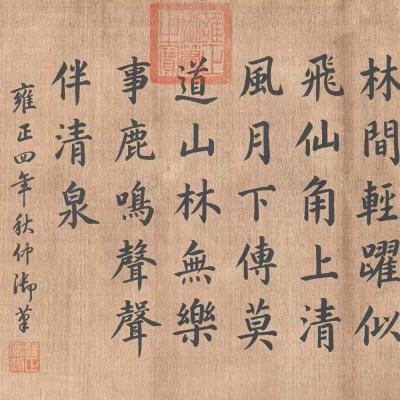 林間輕躍似
飛仙角上清
風月下傳莫
道山林無樂
事鹿鳴聲聲
伴清泉
雍正四年秋仲御筆